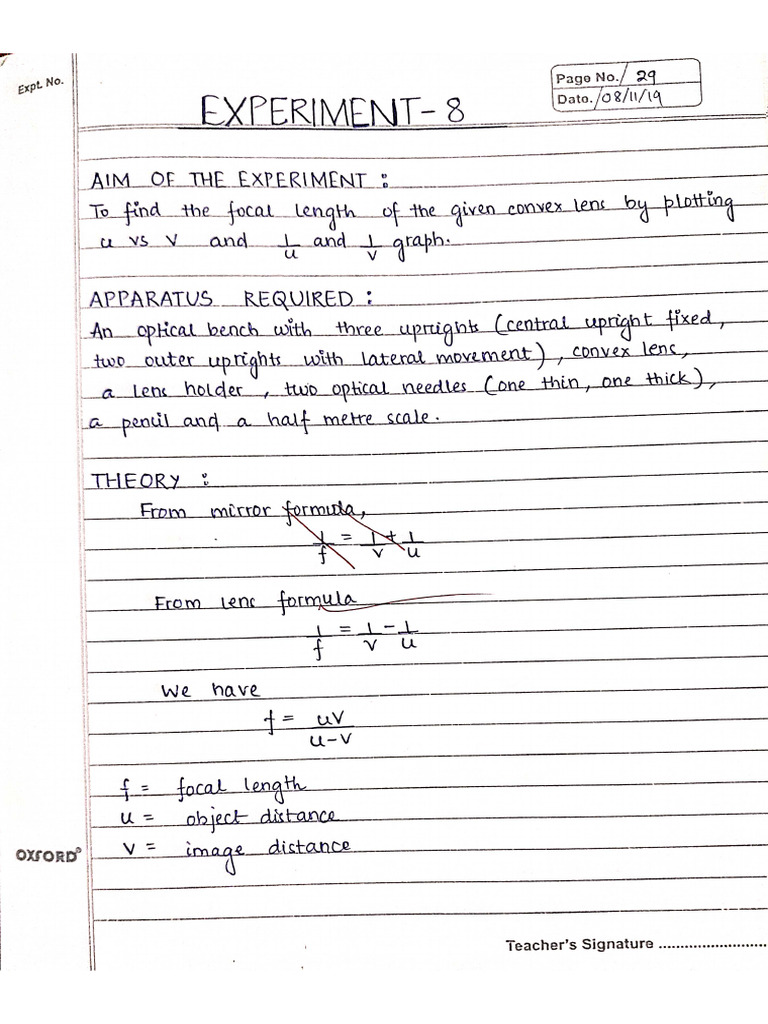 Expt. No.
Page No. 29
Date. 08/11/19
EXPERIMENT - 8
AIM OF THE EXPERIMENT :
To find the focal length of the given convex lens by plotting
u vs v and 1/u and 1/v graph.
APPARATUS REQUIRED :
An optical bench with three uprights (central upright fixed,
two outer uprights with lateral movement), convex lens,
a lens holder, two optical needles (one thin, one thick),
a pencil and a half metre scale.
THEORY :
From mirror formula,
1/f = 1/v + 1/u
From lens formula
1/f = 1/v - 1/u
We have
f = uv/u-v
f = focal length
u = object distance
v = image distance
OXFORD®
Teacher's Signature .........................